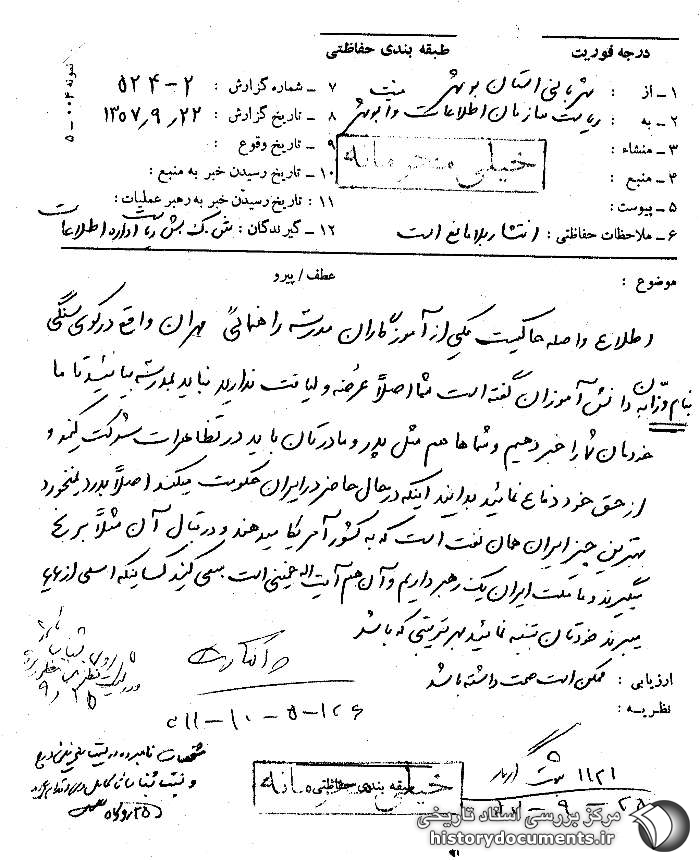 درجه فوریت
طبقه بندی حفاظتی
نمونه ۰۰۴ - ۵
۱ - از : شهربانی استان بوشهر
۲ - به : ریاست سازمان اطلاعات و امنیت بوشهر
۳ - منشاء :
۴ - منبع :
۵ - پیوست :
۶ - ملاحظات حفاظتی : انتشار بلامانع است
۷ - شماره گزارش : ۲-۵۲۴
۸ - تاریخ گزارش : ۲۲ ر ۹ ر ۱۳۵۷
۹ - تاریخ وقوع :
۱۰ - تاریخ رسیدن خبر به منبع :
۱۱ : تاریخ رسیدن خبر به رهبر عملیات :
۱۲ - گیرندگان : اداره اطلاعات
خیلی محرمانه
موضوع :
عطف / پیرو
اطلاع واصله حاکیست یکی از آموزگاران مدرسه راهنمائی مهران واقع در کوی سنگی
بنام به دانش آموزان گفته است شما اصلاً عرضه و لیاقت ندارید نباید بمدرسه بیائید تا ما
خودمان شما را خبر دهیم و شماها هم مثل پدر و مادرتان باید در تظاهرات شرکت کنید و
از حق خود دفاع نمائید بدانید اینکه در حال حاضر در ایران حکومت میکند اصلاً بدرد نمیخورد
بهترین چیز ایران همان نفت است که به کشور آمریکا میدهند و در قبال آن مثلاً برنج
میگیرند و ما ملت ایران یک رهبر داریم و آن هم آیت اله خمینی است سعی کنید کسانیکه اسمی از
میبرند خودتان تنبیه نمائید بهر ترتیبی که باشد
ارزیابی : ممکن است صحت داشته باشد
نظریه :
مشخصات نامبرده در لیست
خیلی محرمانه
طبقه بندی حفاظتی
۱۱۲۱
مرکز بررسی اسناد تاریخی
historydocuments.ir